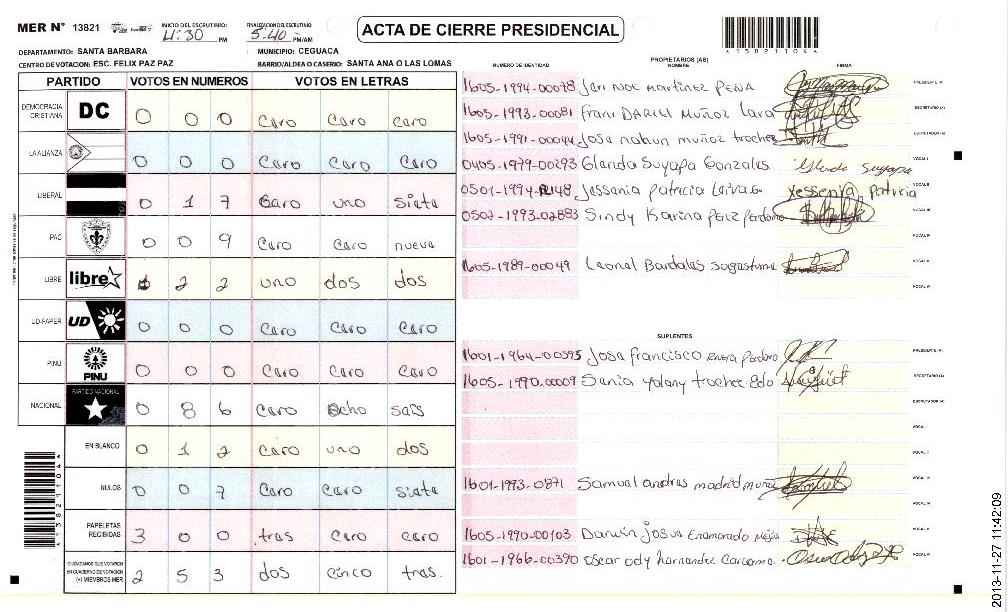 MER N° 13821
INICIO DEL ESCRUTINIO:
4:30 PM
FINALIZACION DEL ESCRUTINIO
5:40 PM/AM
ACTA DE CIERRE PRESIDENCIAL
13821104
DEPARTAMENTO: SANTA BARBARA
MUNICIPIO: CEGUACA
CENTRO DE VOTACION: ESC. FELIX PAZ PAZ
BARRIO/ALDEA O CASERIO: SANTA ANA O LAS LOMAS
PARTIDO VOTOS EN NUMEROS VOTOS EN LETRAS
DEMOCRACIA CRISTIANA DC 0 0 0 Cero Cero cero
LA ALIANZA 0 0 0 Cero Cero Cero
LIBERAL 0 1 7 Cero uno siete
PAC 0 0 9 Cero Cero nueve
LIBRE libre 2 2 uno dos dos
UD-FAPER UD 0 0 0 Cero Cero Cero
PINU PINU 0 0 0 Cero Cero Cero
NACIONAL PARTIDO NACIONAL 0 8 6 Cero Ocho seis
EN BLANCO 0 1 2 cero uno dos
NULOS 0 0 7 Cero cero siete
PAPELETAS RECIBIDAS 3 0 0 tres cero cero
CIUDADANOS QUE VOTARON EN CUADERNO DE VOTACION (+) MIEMBROS MER 2 5 3 dos cinco tres.
13821104
PROPIETARIOS (AS)
NUMERO DE IDENTIDAD NOMBRE FIRMA
1605-1994-00078 Jeri Noe martinez PEÑA PRESIDENTE (A)
1605-1993-00081 frani DARIEL MUÑOZ Lara SECRETARIO (A)
1605-1991-00044 Jose nahun muñoz trochez ESCRUTADOR (A)
0405-1979-00293 Glenda Suyapa Gonzales Glenda suyapa VOCAL I
Jessenia patricia Yessenia patricia VOCAL II
0502-1993-02883 Sindy Karina perez perdomo VOCAL III
VOCAL IV
1605-1989-00049 Leonel Bardales sagastume VOCAL V
VOCAL VI
SUPLENTES
1601-1964-00395 Jose francisco perdomo PRESIDENTE (A)
1605-1990-00009 Sonia yolany trochez SECRETARIO (A)
ESCRUTADOR (A)
VOCAL I
VOCAL II
1601-1993-0871 Samuel andres madrid muñoz VOCAL III
VOCAL IV
1605-1990-00103 Darwin josue Enamorado mejia VOCAL V
1601-1966-00390 oscar ody hernandez VOCAL VI
2013-11-27 11:42:09